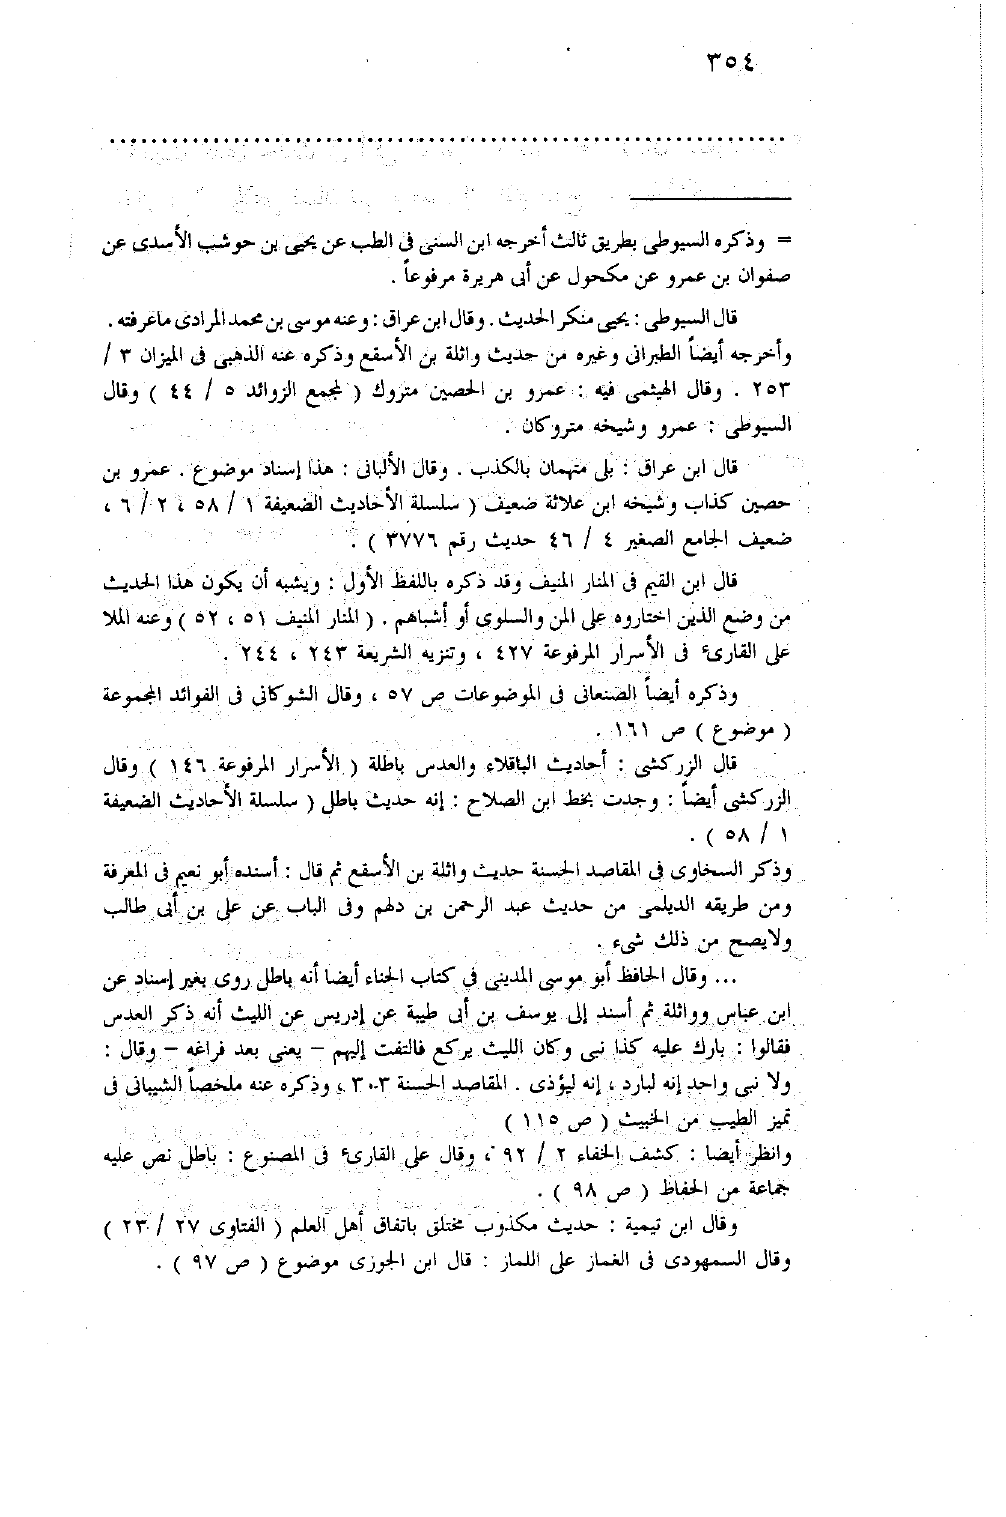 ٣٥٤
= وذكره السيوطى بطريق ثالث أخرجه ابن السنى فى الطب عن يحيى بن حوشب الأسدى عن
صفوان بن عمرو عن مكحول عن أبى هريرة مرفوعاً .
قال السيوطى : يحيى منكر الحديث . وقال ابن عراق : وعنه موسى بن محمد المرادى ماعرفته .
وأخرجه أيضاً الطبرانى وغيره من حديث واثلة بن الأسقع وذكره عنه الذهبى فى الميزان ٣ /
٢٥٣ . وقال الهيثمى فيه : عمرو بن الحصين متروك ( مجمع الزوائد ٥ / ٤٤ ) وقال
السيوطى : عمرو وشيخه متروكان .
قال ابن عراق : بلى متهمان بالكذب . وقال الألبانى : هذا إسناد موضوع . عمرو بن
حصين كذاب وشيخه ابن علاثة ضعيف ( سلسلة الأحاديث الضعيفة ١ / ٥٨ ، ٢ / ٦ ،
ضعيف الجامع الصغير ٤ / ٤٦ حديث رقم ٣٧٧٦ ) .
قال ابن القيم فى المنار المنيف وقد ذكره باللفظ الأول : ويشبه أن يكون هذا الحديث
من وضع الذين اختاروه على المن والسلوى أو أشباههم . ( المنار المنيف ٥١ ، ٥٢ ) وعنه الملا
على القارىء فى الأسرار المرفوعة ٤٢٧ ، وتنزيه الشريعة ٢٤٣ ، ٢٤٤ .
وذكره أيضاً الصنعانى فى الموضوعات ص ٥٧ ، وقال الشوكانى فى الفوائد المجموعة
( موضوع ) ص ١٦١ .
قال الزركشى : أحاديث الباقلاء والعدس باطلة ( الأسرار المرفوعة ١٤٦ ) وقال
الزركشى أيضاً : وجدت بخط ابن الصلاح : إنه حديث باطل ( سلسلة الأحاديث الضعيفة
١ / ٥٨ ) .
وذكر السخاوى فى المقاصد الحسنة حديث واثلة بن الأسقع ثم قال : أسنده أبو نعيم فى المعرفة
ومن طريقه الديلمى من حديث عبد الرحمن بن دلهم وفى الباب عن على بن أبى طالب
ولايصح من ذلك شىء .
... وقال الحافظ أبو موسى المدينى فى كتاب الحناء أيضا أنه باطل روى بغير إسناد عن
ابن عباس وواثلة ثم أسند إلى يوسف بن أبى طيبة عن إدريس عن الليث أنه ذكر العدس
فقالوا : بارك عليه كذا نبى وكان الليث يركع فالتفت إليهم – يعنى بعد فراغه – وقال :
ولا نبى واحد إنه لبارد ، إنه ليؤذى . المقاصد الحسنة ٣٠٣ ، وذكره عنه ملخصاً الشيبانى فى
تميز الطيب من الخبيث ( ص ١١٥ )
وانظر أيضا : كشف الخفاء ٢ / ٩٢ ، وقال على القارىء فى المصنوع : باطل نص عليه
جماعة من الحفاظ ( ص ٩٨ ) .
وقال ابن تيمية : حديث مكذوب مختلق باتفاق أهل العلم ( الفتاوى ٢٧ / ٢٣ )
وقال السمهودى فى الغماز على اللماز : قال ابن الجوزى موضوع ( ص ٩٧ ) .